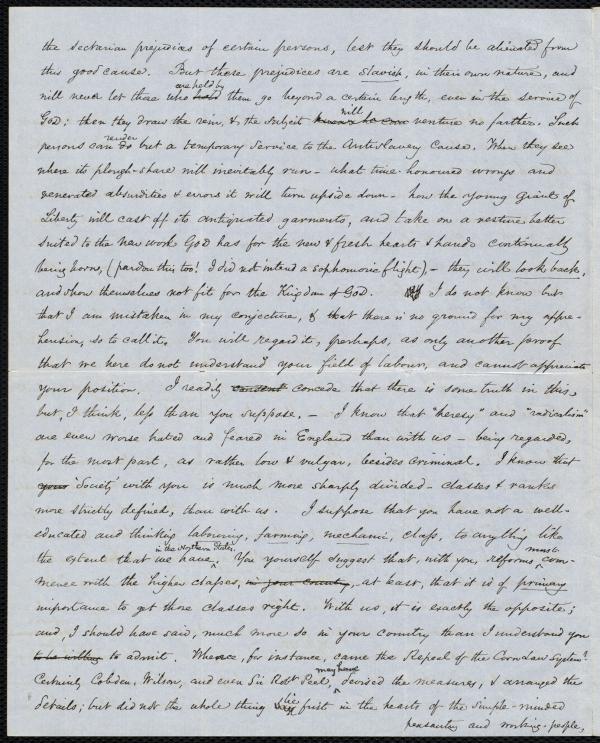 the sectarian prejudices of certain persons, lest they should be alienated from
this good cause. But those prejudices are slavish, in their own nature, and
will never let those who are held by them go beyond a certain length, even in the service of
God; then they draw the rein, & the subject will venture no farther. Such
persons can render but a temporary service to the Antislavery Cause. When they see
where its plough-share will inevitably run - what time-honoured wrongs and
venerated absurdities & errors it will turn upside down - how the young giant of
Liberty will cast off its antiquated garments, and take on a vesture better
suited to the new work God has for the new & fresh hearts & hands continually
being born, (pardon this too! I did not intend a sophomoric flight), - they will look back,
and show themselves not fit for the Kigdom of God. I do not know but
that I am mistaken in my conjecture, & that there is no ground for my appre-
hension, so to call it. You will regard it, perhaps, as only another proof
that we here do not understand your field of labour, and cannot appreciate
your position. I readily concede that there is some truth in this,
but, I think, less than you suppose. - I know that "heresy" and "radicalism"
are even worse hated and feared in England than with us - being regarded,
for the most part, as rather low & vulgar, besides criminal. I know that
'Society' with you is much more sharply divided - classes & ranks
more strictly defined, than with us. I suppose that you have not a well-
educated and thinking laboring, farming, mechanic, class, to anything like
the extent that we have in the Northern States. You yourself suggest that, with you, reforms must com-
mence with the higher classes, in your country, at least, that it is of primary
importance to get those classes right. With us, it is exactly the opposite;
and, I should have said, much more so in your country than I understand you
to be willing to admit. Whence, for instance, came the Repeal of the Corn Law System?
Certainly Cobden, Wilson, and even Sir Robt Peel, may have devised the measures, & arranged the
details; but did not the whole thing lie first in the hearts of the simple-minded
peasantry and working-people,